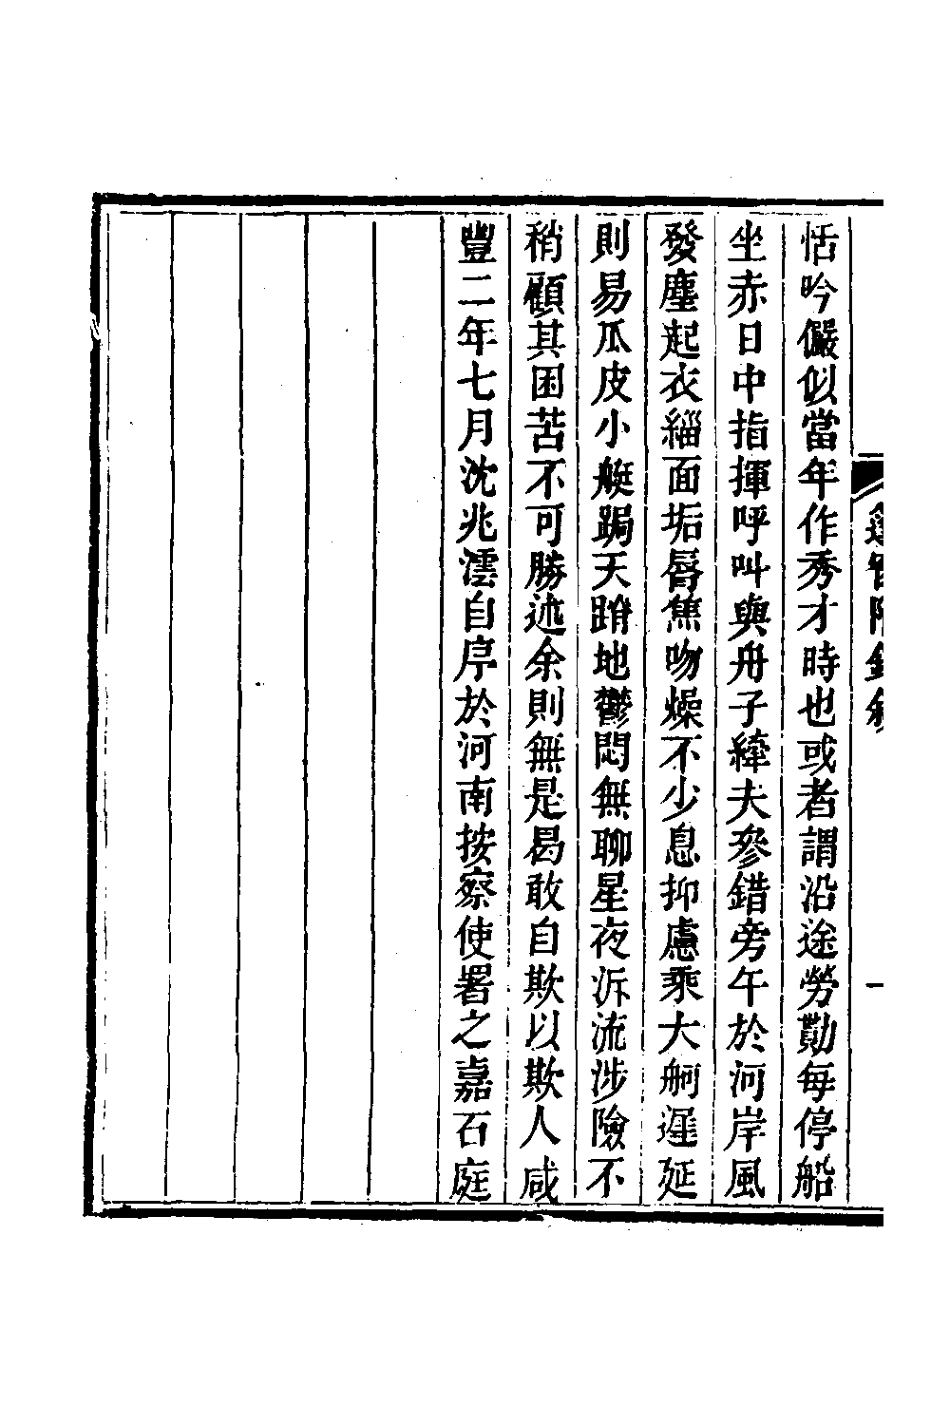 恬吟儼似當年作秀才時也或者謂沿途勞勩每停船
坐赤日中指揮呼叫與舟子縴夫參錯旁午於河岸風
發塵起衣緇面垢唇焦吻燥不少息抑慮乘大舸遲延
則易瓜皮小艇跼天蹐地鬱悶無聊星夜泝流涉險不
稍顧其困苦不可勝述余則無是曷敢自欺以欺人咸
豐二年七月沈兆澐自序於河南按察使署之嘉石庭
一